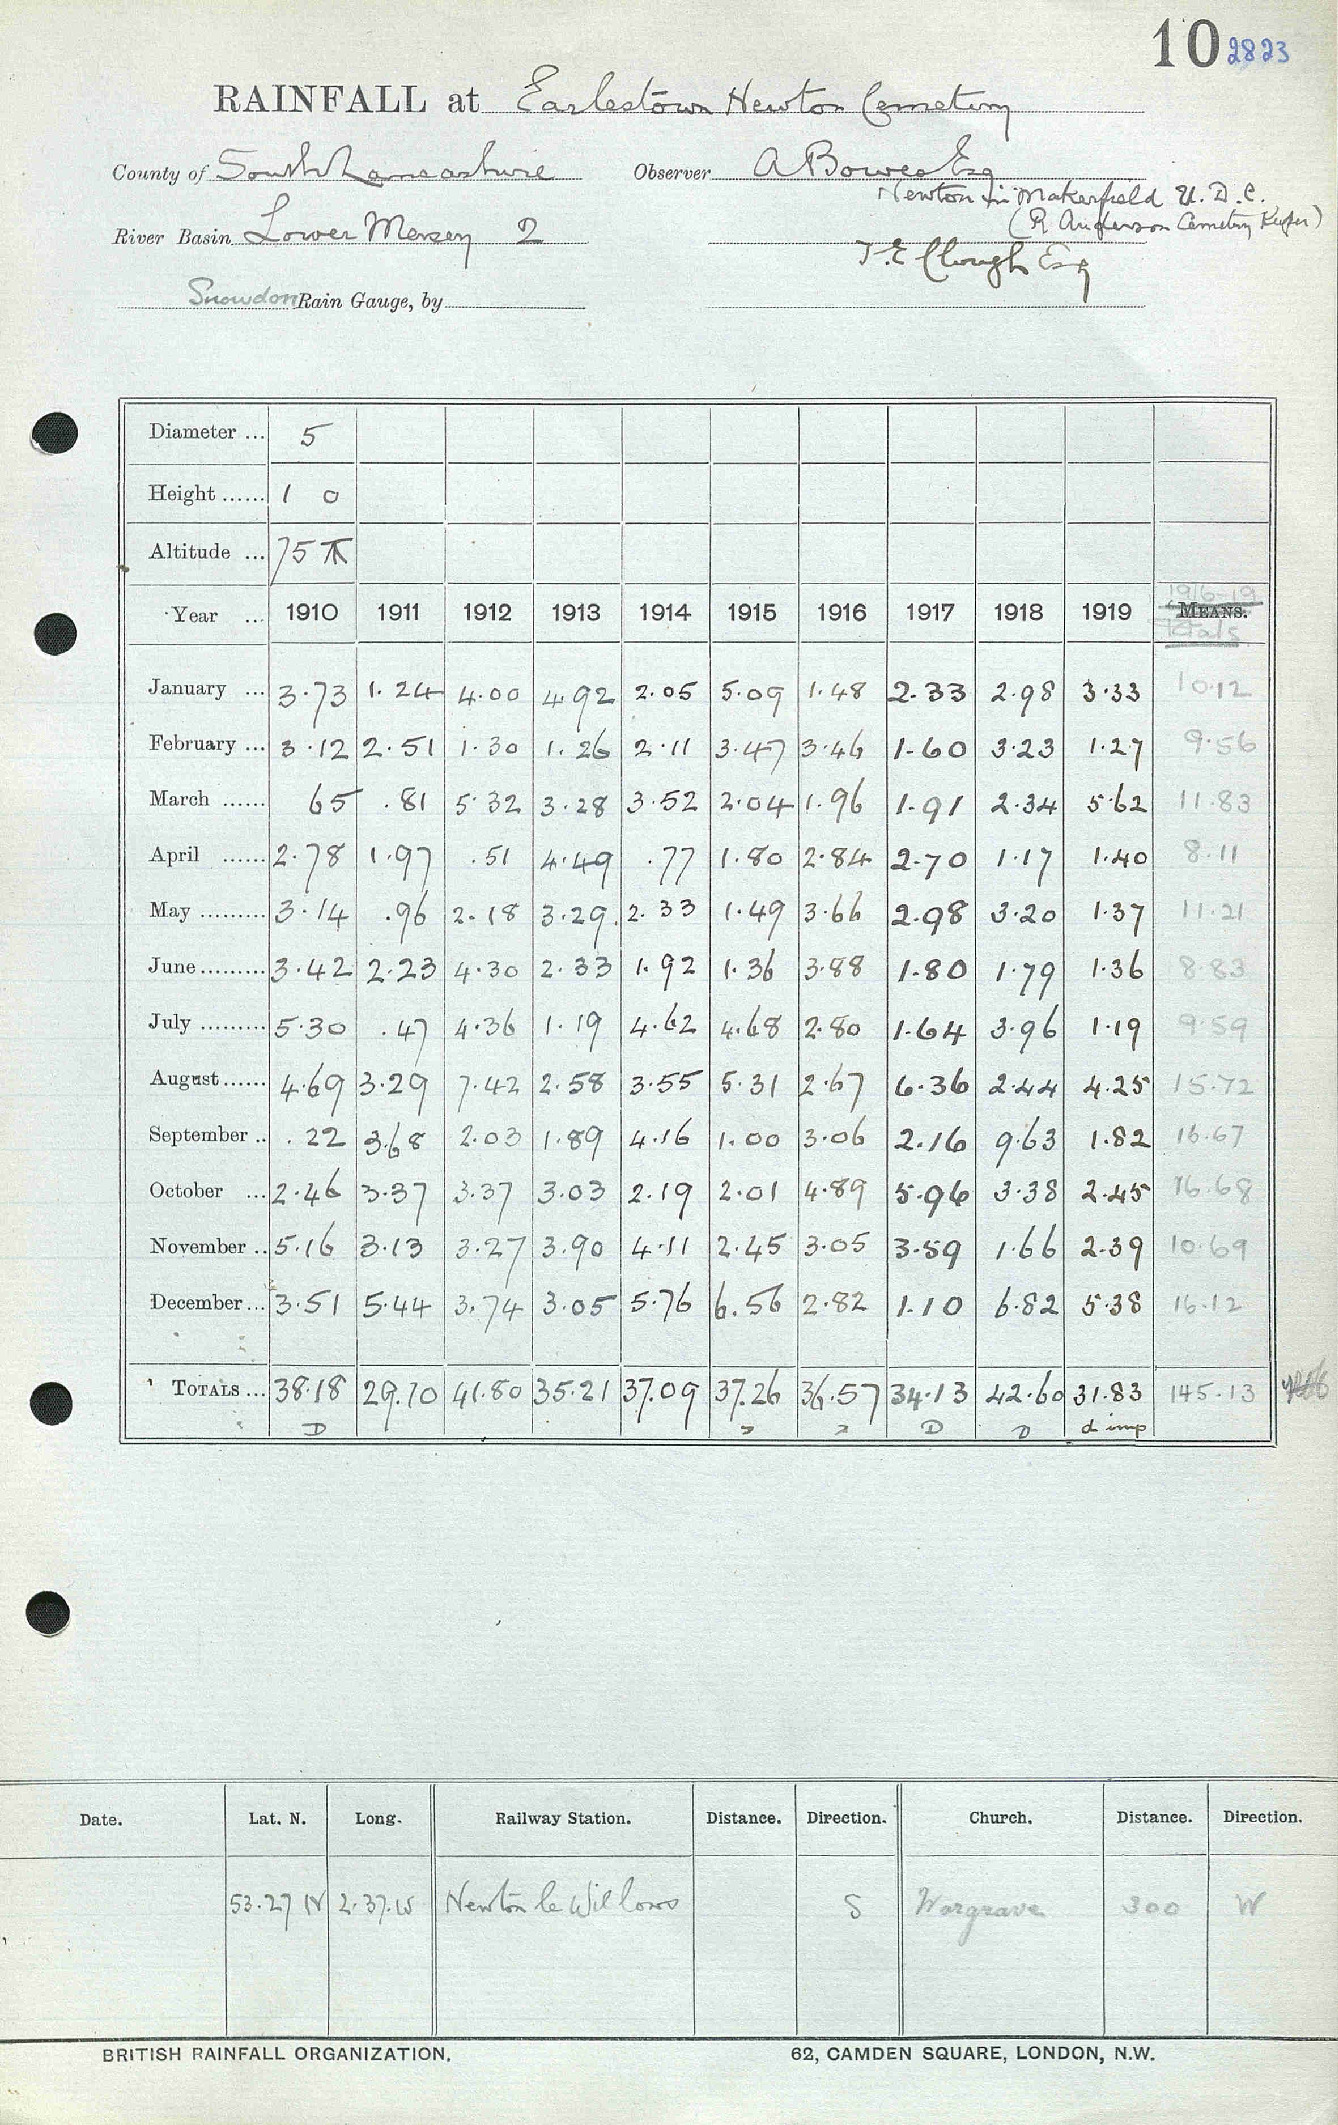 10 2823
RAINFALL at Earlestown Newton Cemetery
County of South Lancashire Observer A Bowes Esq
Newton in Makerfield U.D.C.
(R Anderson Cemetery Keeper)
River Basin Lower Mersey 2
T.E Clough Esq
Snowdon Rain Gauge, by
Diameter ... 5
Height ...... 1 0
Altitude ... 75
1916-19
Year ... 1910 1911 1912 1913 1914 1915 1916 1917 1918 1919 MEANS.
Totals
January ... 3.73 1.24 4.00 4.92 2.05 5.09 1.48 2.33 2.98 3.33 10.12
February ... 3.12 2.51 1.30 1.26 2.11 3.47 3.46 1.60 3.23 1.27 9.56
March ...... 65 .81 5.32 3.28 3.52 2.04 1.96 1.91 2.34 5.62 11.83
April ...... 2.78 1.97 .51 4.49 .77 1.80 2.84 2.70 1.17 1.40 8.11
May ......... 3.14 .96 2.18 3.29 2.33 1.49 3.66 2.98 3.20 1.37 11.21
June ......... 3.42 2.23 4.30 2.33 1.92 1.36 3.88 1.80 1.79 1.36 8.83
July ......... 5.30 .47 4.36 1.19 4.62 4.68 2.80 1.64 3.96 1.19 9.59
August ...... 4.69 3.29 7.42 2.58 3.55 5.31 2.67 6.36 2.44 4.25 15.72
September .. .22 3.68 2.03 1.89 4.16 1.00 3.06 2.16 9.63 1.82 16.67
October ... 2.46 3.37 3.37 3.03 2.19 2.01 4.89 5.96 3.38 2.45 16.68
November .. 5.16 3.13 3.27 3.90 4.11 2.45 3.05 3.59 1.66 2.39 10.69
December ... 3.51 5.44 3.74 3.05 5.76 6.56 2.82 1.10 6.82 5.38 16.12
TOTALS ... 38.18 29.10 41.80 35.21 37.09 37.26 36.57 34.13 42.60 31.83 145.13
D D D d imp
Date. Lat. N. Long. Railway Station. Distance. Direction. Church. Distance. Direction.
53.27 N 2.37.W Newton le Willows S Wargrave 300 W
BRITISH RAINFALL ORGANIZATION, 62, CAMDEN SQUARE, LONDON, N.W.